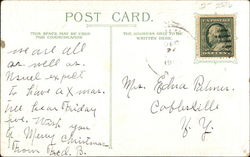 POST CARD.
THIS SPACE MAY BE USED
FOR COMMUNICATION
THE ADDRESS ONLY TO BE
WRITTEN HERE.
we are all
as well as
usual expect
to have a Xmas
tree hear Friday
eve. Wish you
a Merry Christmas
From Fred. B.
Mrs. Edna
Cobleskille
N. Y.